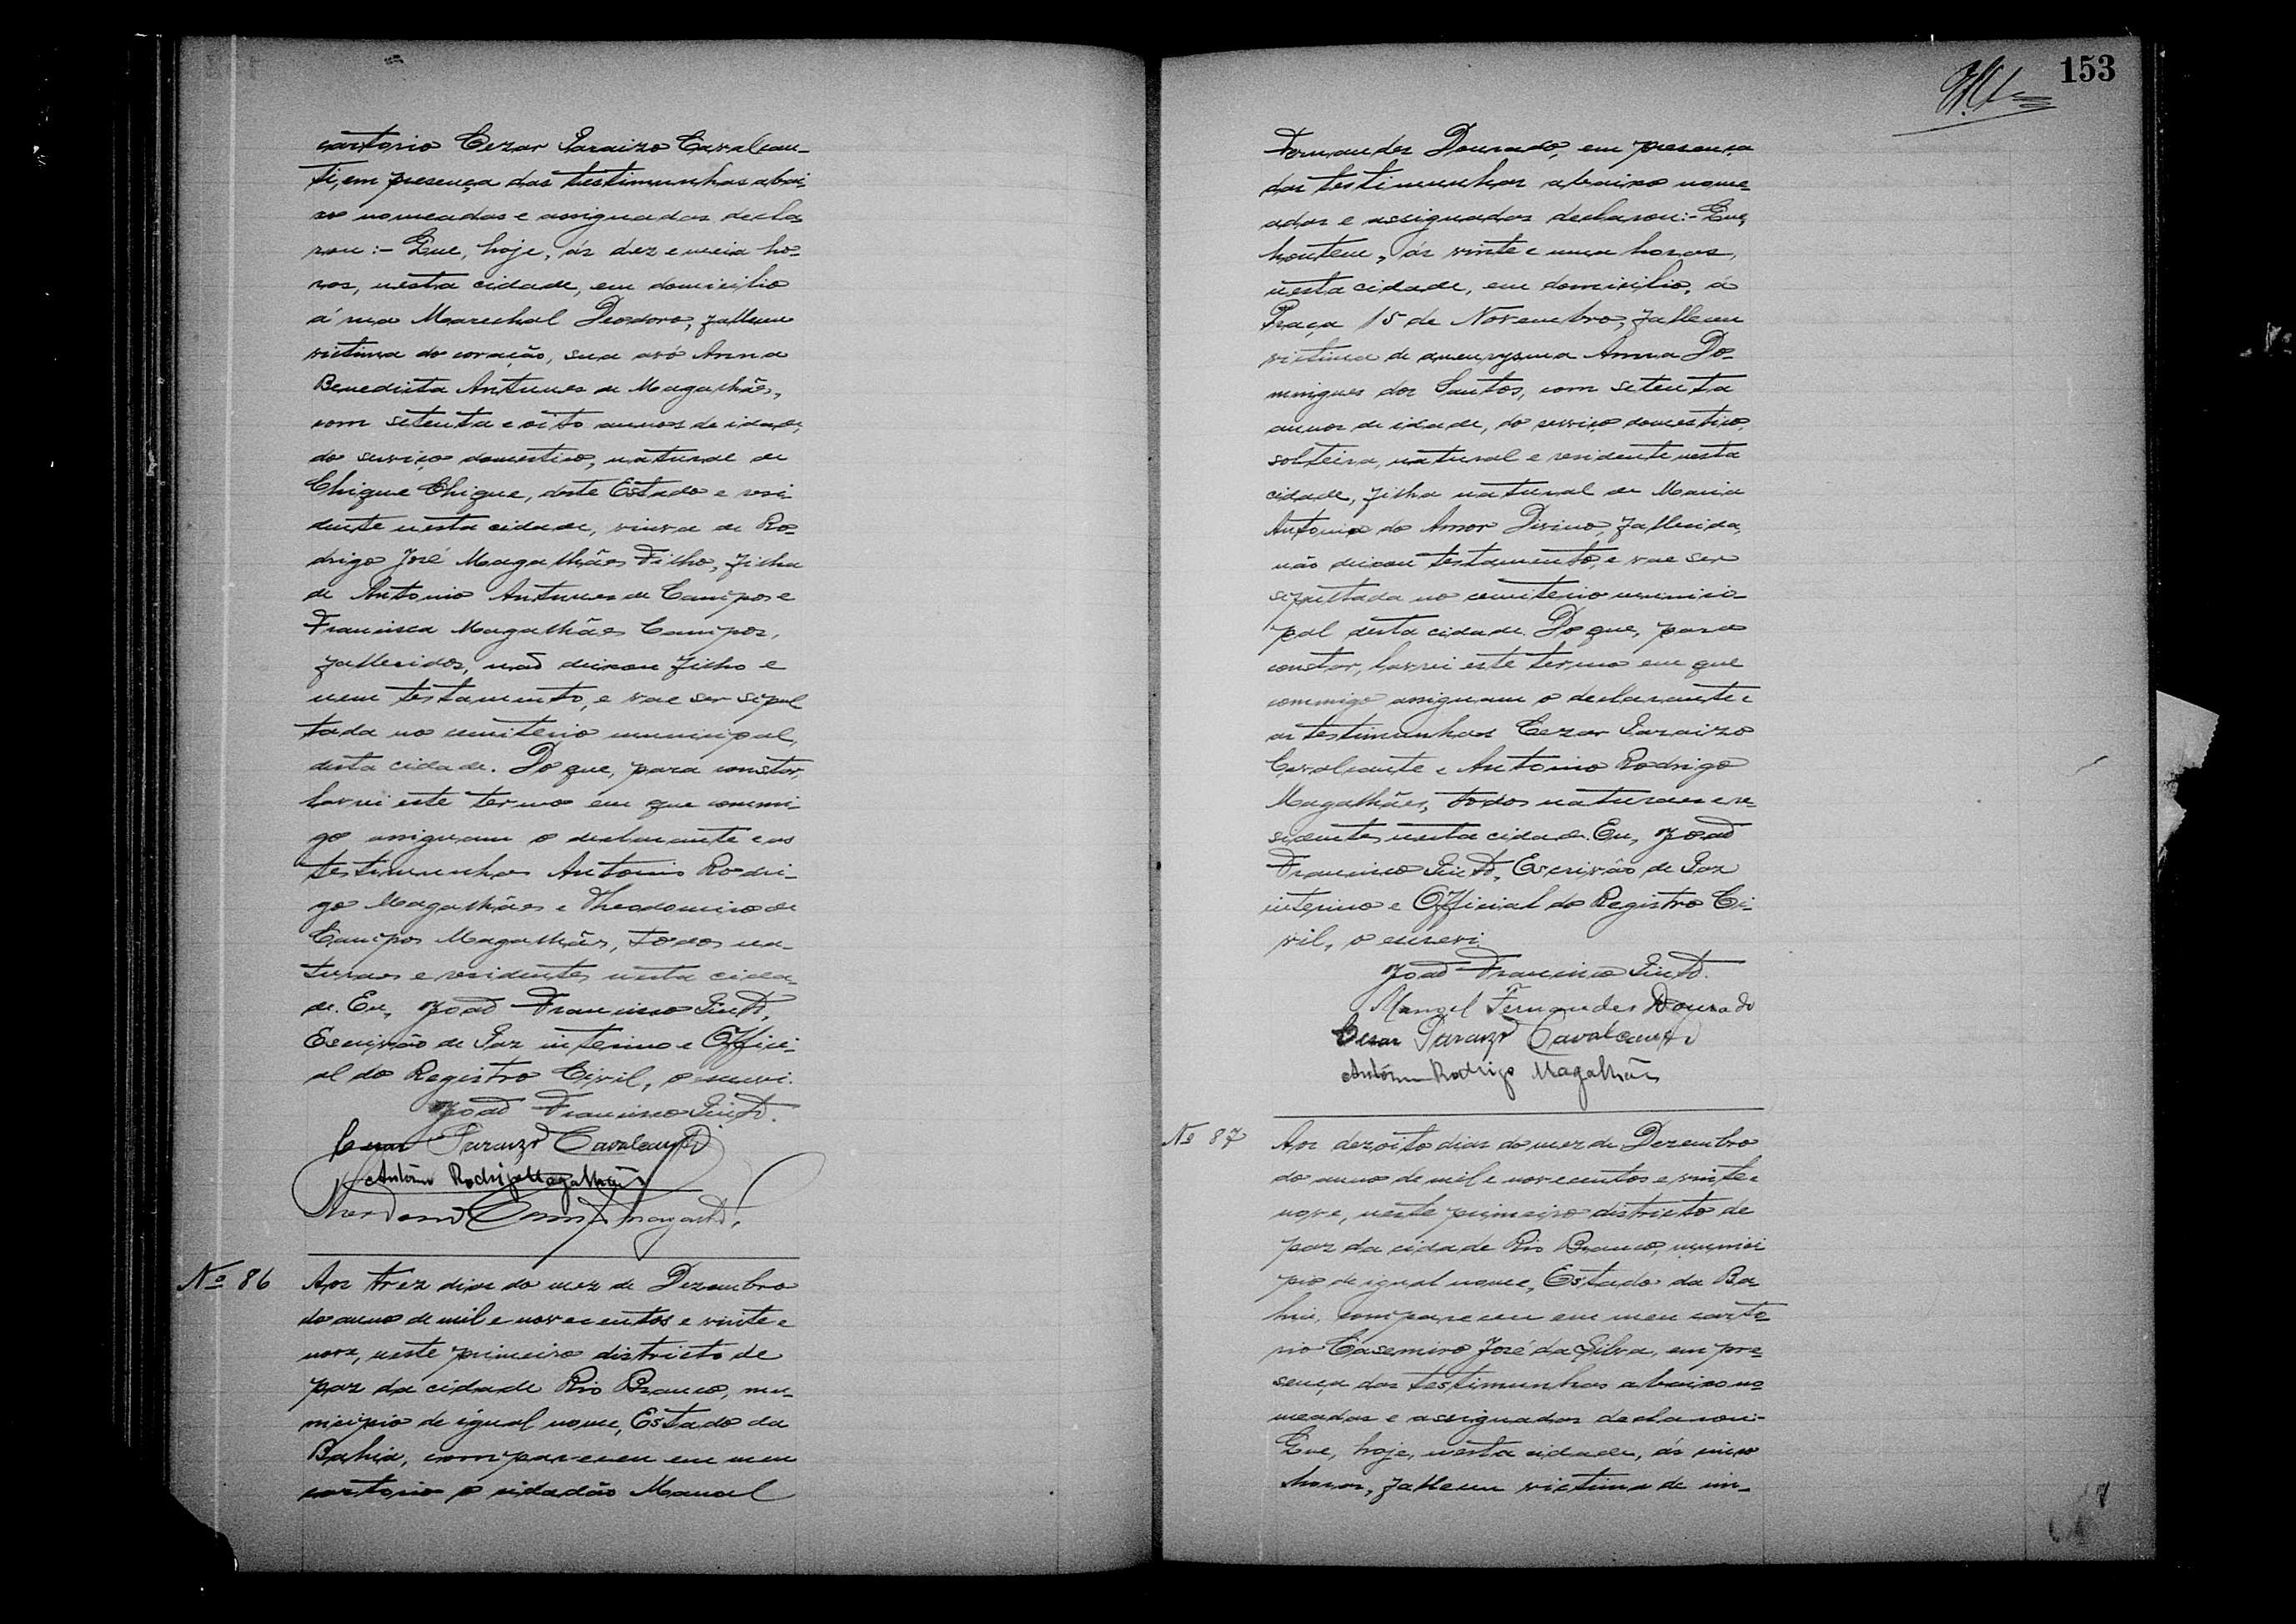 cartorio Cezar Paraizo Cavalcan-
ti, em presença das testimunhas abai-
xo nomeadas e assignadas decla
rou:- Que, hoje, ás dez e meia ho-
ras, nesta cidade, em domicilio
á rua Marechal Deodoro, falleceu
victima do coração, sua avó Anna
Benedicta Antunes de Magalhães,
com setenta e oito annos de idade,
do serviço domestico, natural de
Chique Chique, deste Estado e resi
dente nesta cidade, viuva de Ro-
drigo José Magalhães Filho, filha
de Antonio Antunes de Campos e
Francisca Magalhães Campos,
fallecidos, não deixou filho e
nem testamento, e vae ser sepul
tada no cemiterio municipal,
desta cidade. Do que, para constar,
lavrei este termo em que commi-
go assignam o declarante e as
testimunhas Antonio Rodri-
go Magalhães e Theodomiro de
Campos Magalhães, todos na-
turaes e residentes nesta cida-
de. Eu, João Francisco Pinto,
Escrivão de Paz interino e Offici-
al do Registro Civil, o escrevi.
João Francisco Pinto.
Cezar Paraizo Cavalcanti
Antônio Rodrigo Magalhães
Campos Magalhães
Nº 86 Aos trez dias do mez de Dezembro
do anno de mil e novecentos e vinte e
nove, neste primeiro districto de
paz da cidade Rio Branco, mu-
nicipio de igual nome, Estado da
Bahia, compareceu em meu
cartorio o cidadão Manoel
153
Fernandes Dourado, em presença
das testimunhas abaixo nome-
adas e assignadas declarou:- Que,
hontem, ás vinte e uma horas,
nesta cidade, em domicilio, á
Praça 15 de Novembro, falleceu
victima de aneurysma Anna Do-
mingues dos Santos, com setenta
annos de idade, do serviço domestico,
solteira, natural e residente nesta
cidade, filha natural de Maria
Antonia do Amor Divino, fallecida,
não deixou testamento, e vae ser
sepultada no cemiterio munici-
pal desta cidade. Do que, para
constar, lavrei este termo em que
commigo assignam o declarante e
as testimunhas Cezar Paraizo
Cavalcante e Antonio Rodrigo
Magalhães, todos naturaes e re-
sidentes nesta cidade. Eu, João
Francisco Pinto, Escrivão de Paz
interino e Official do Registro Ci-
vil, o escrevi.
João Francisco Pinto.
Manoel Fernandes Dourado
Cezar Paraizo Cavalcanti
Antônio Rodrigo Magalhães
Nº 87 Aos dezoito dias do mez de Dezembro
do anno de mil e novecentos e vinte e
nove, neste primeiro districto de
paz da cidade Rio Branco, munici
pio de igual nome, Estado da Ba-
hia, compareceu em meu carto-
rio Casemiro José da Silva, em pre-
sença das testimunhas abaixo no-
meadas e assignadas declarou:-
Que, hoje, nesta cidade, ás cinco
horas, falleceu victima de in-